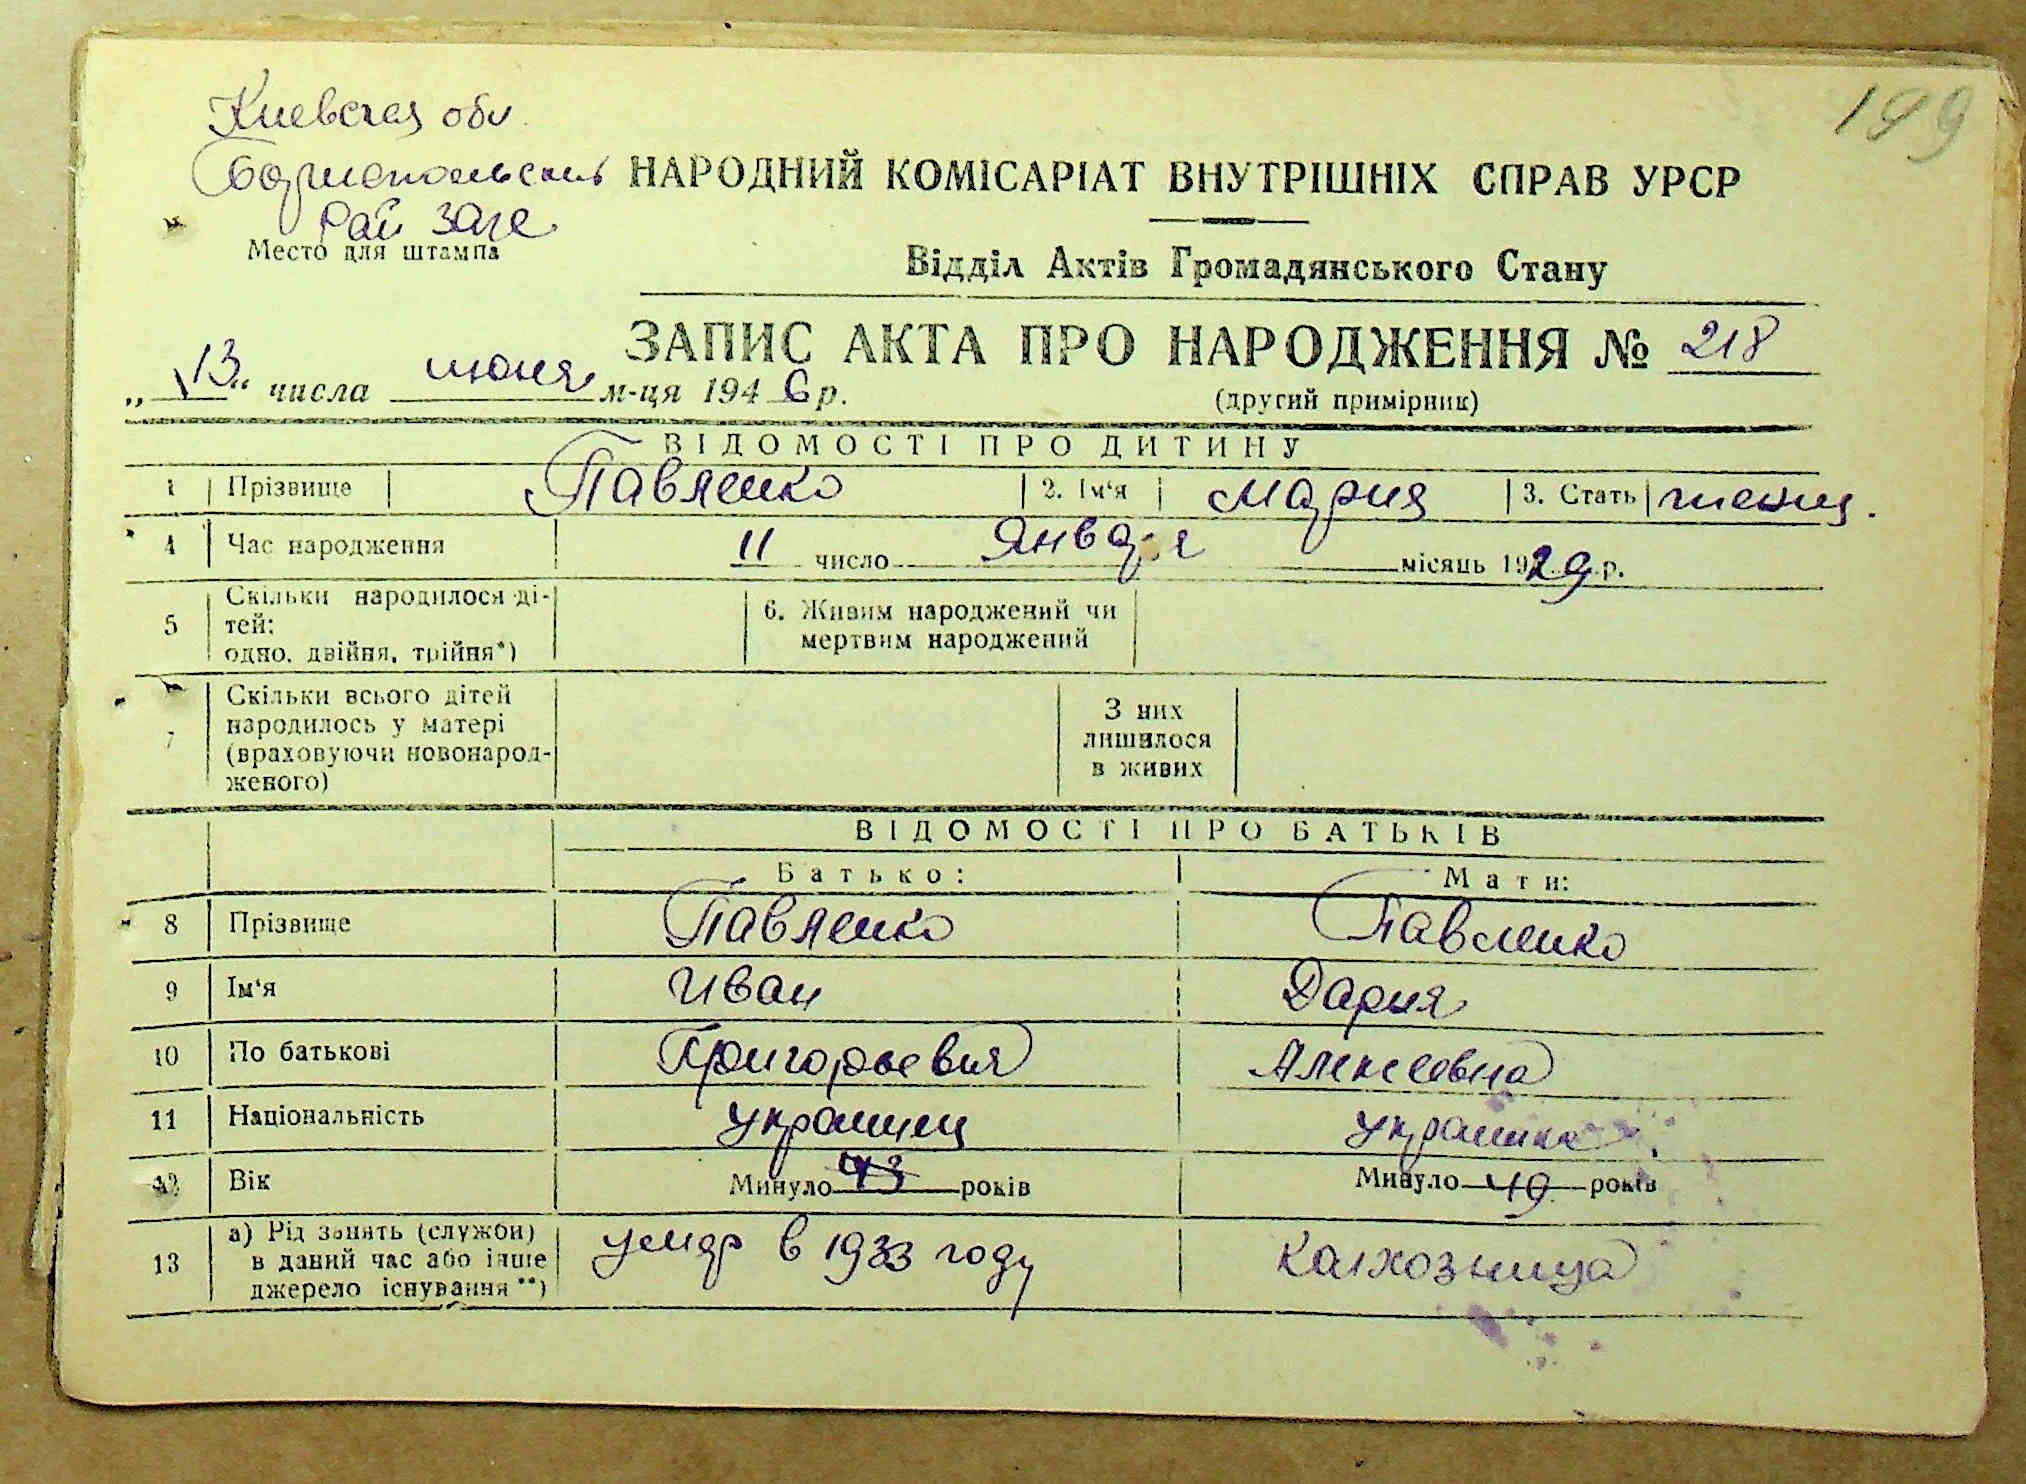 199
Киевская обл.
Бориспольский
Рай загс
Место для штампа
НАРОДНИЙ КОМІСАРІАТ ВНУТРІШНІХ СПРАВ УРСР
Відділ Актів Громадянського Стану
ЗАПИС АКТА ПРО НАРОДЖЕННЯ № 218
„13“ числа июня м-ця 1946 р.
(другий примірник)
ВІДОМОСТІ ПРО ДИТИНУ
1 Прізвище Павленко 2. Ім‘я Мария 3. Стать женщ.
4 Час народження 11 число января місяць 1929 р.
5 Скільки народилося ді-
тей:
одно, двійня, трійня*)
6. Живим народжений чи
мертвим народжений
7 Скільки всього дітей
народилось у матері
(враховуючи новонарод-
женого)
З них
лишилося
в живих
ВІДОМОСТІ ПРО БАТЬКІВ
Батько: Мати:
8 Прізвище Павленко Павленко
9 Ім‘я Иван Дария
10 По батькові Григорьевич Алексеевна
11 Національність украинец украинка
12 Вік Минуло 43 років Минуло 49 років
13 а) Рід занять (служби)
в даний час або інше
джерело існування **)
умер в 1933 году колхозница